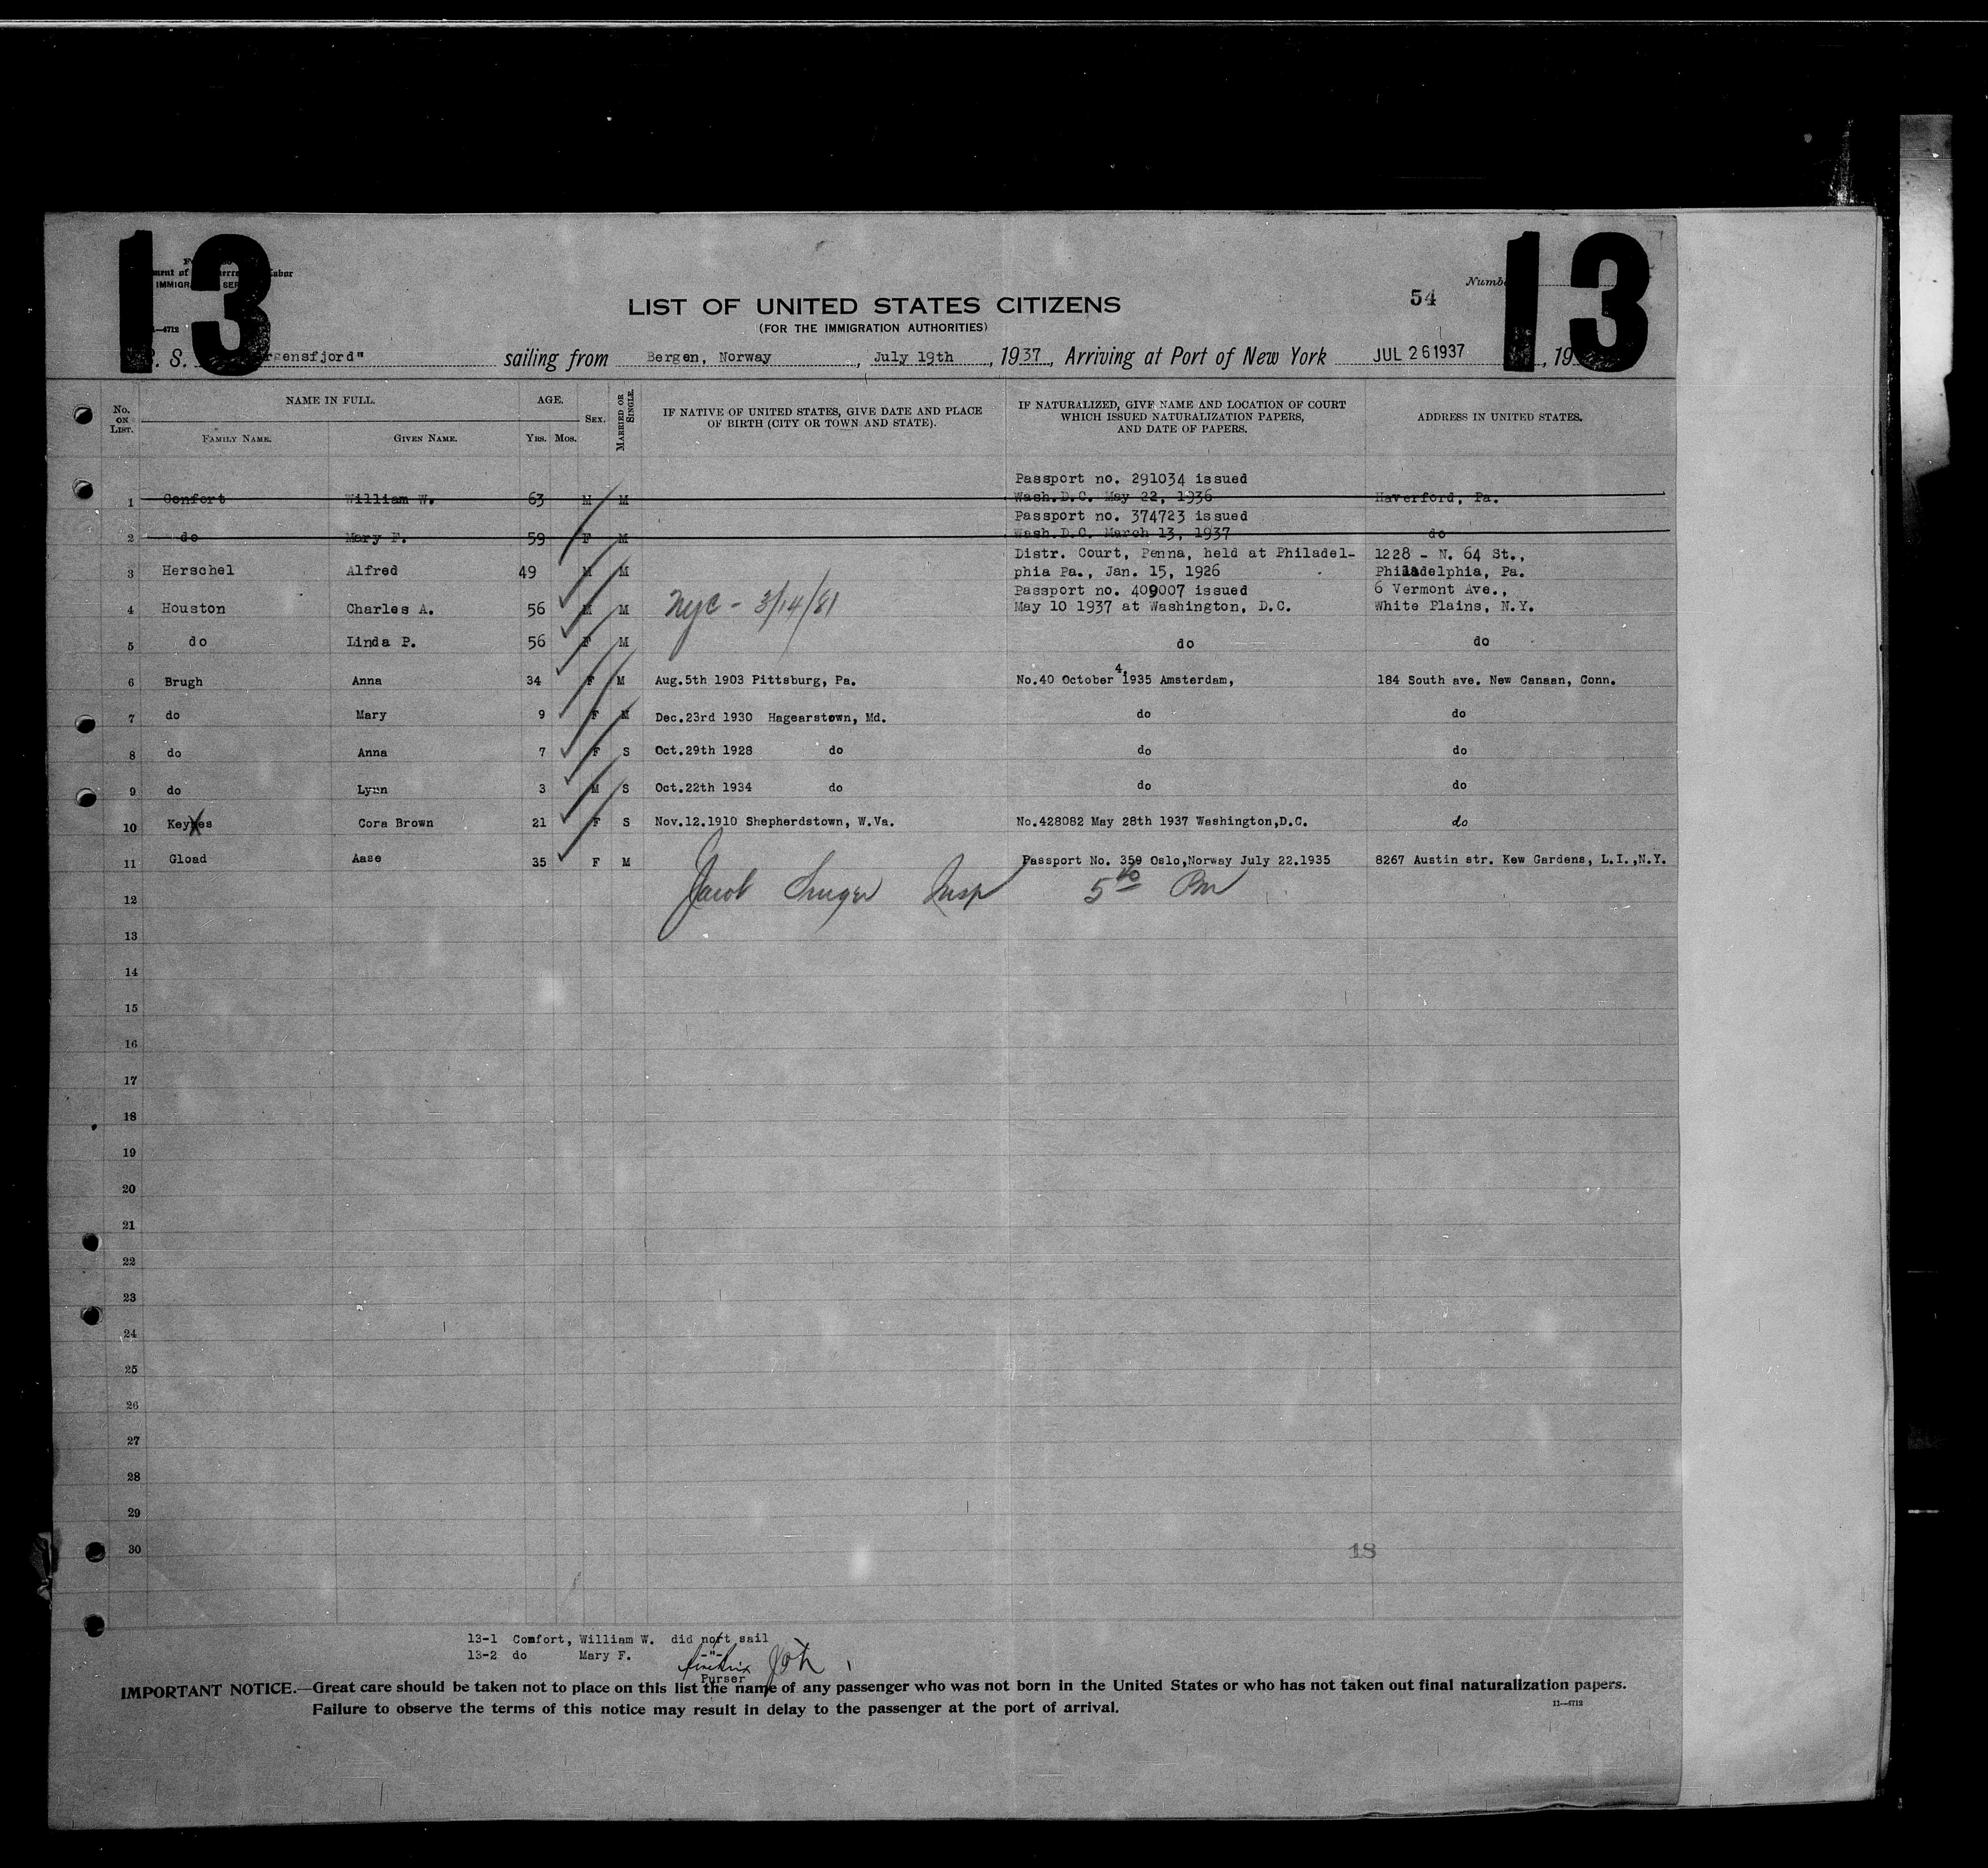 13
13
IMMIGR
11—4712
54
LIST OF UNITED STATES CITIZENS
(FOR THE IMMIGRATION AUTHORITIES)
S. S. rgensfjord" sailing from Bergen, Norway, July 19th, 1937, Arriving at Port of New York JUL 26 1937, 19
No. ON LIST.
NAME IN FULL.
FAMILY NAME. GIVEN NAME.
AGE.
YRS. MOS.
SEX.
MARRIED OR SINGLE.
IF NATIVE OF UNITED STATES, GIVE DATE AND PLACE
OF BIRTH (CITY OR TOWN AND STATE).
IF NATURALIZED, GIVE NAME AND LOCATION OF COURT
WHICH ISSUED NATURALIZATION PAPERS,
AND DATE OF PAPERS.
ADDRESS IN UNITED STATES.
Passport no. 291034 issued
1 Confort William W. 63 M M Wash.D.C. May 22, 1936 Haverford, Pa.
Passport no. 374723 issued
2 do Mary F. 59 F M Wash.D.C. March 13, 1937 do
Distr. Court, Penna, held at Philadel- 1228 - N. 64 St.,
3 Herschel Alfred 49 M M phia Pa., Jan. 15, 1926 Philadelphia, Pa.
Passport no. 409007 issued 6 Vermont Ave.,
4 Houston Charles A. 56 M M NYC - 3/14/81 May 10 1937 at Washington, D.C. White Plains, N.Y.
5 do Linda P. 56 F M do do
6 Brugh Anna 34 F M Aug.5th 1903 Pittsburg, Pa. No.40 October 4, 1935 Amsterdam, 184 South ave. New Canaan, Conn.
7 do Mary 9 F M Dec.23rd 1930 Hagearstown, Md. do do
8 do Anna 7 F S Oct.29th 1928 do do do
9 do Lynn 3 M S Oct.22th 1934 do do do
10 Keyes Cora Brown 21 F S Nov.12.1910 Shepherdstown, W.Va. No.428082 May 28th 1937 Washington,D.C. do
11 Gload Aase 35 F M Passport No. 359 Oslo,Norway July 22.1935 8267 Austin str. Kew Gardens, L.I.,N.Y.
12 Jacob Insp
13
14
15
16
17
18
19
20
21
22
23
24
25
26
27
28
29
30 18
13-1 Comfort, William W. did not sail
13-2 do Mary F. -"-
Purser
IMPORTANT NOTICE.—Great care should be taken not to place on this list the name of any passenger who was not born in the United States or who has not taken out final naturalization papers.
Failure to observe the terms of this notice may result in delay to the passenger at the port of arrival.
11—4712